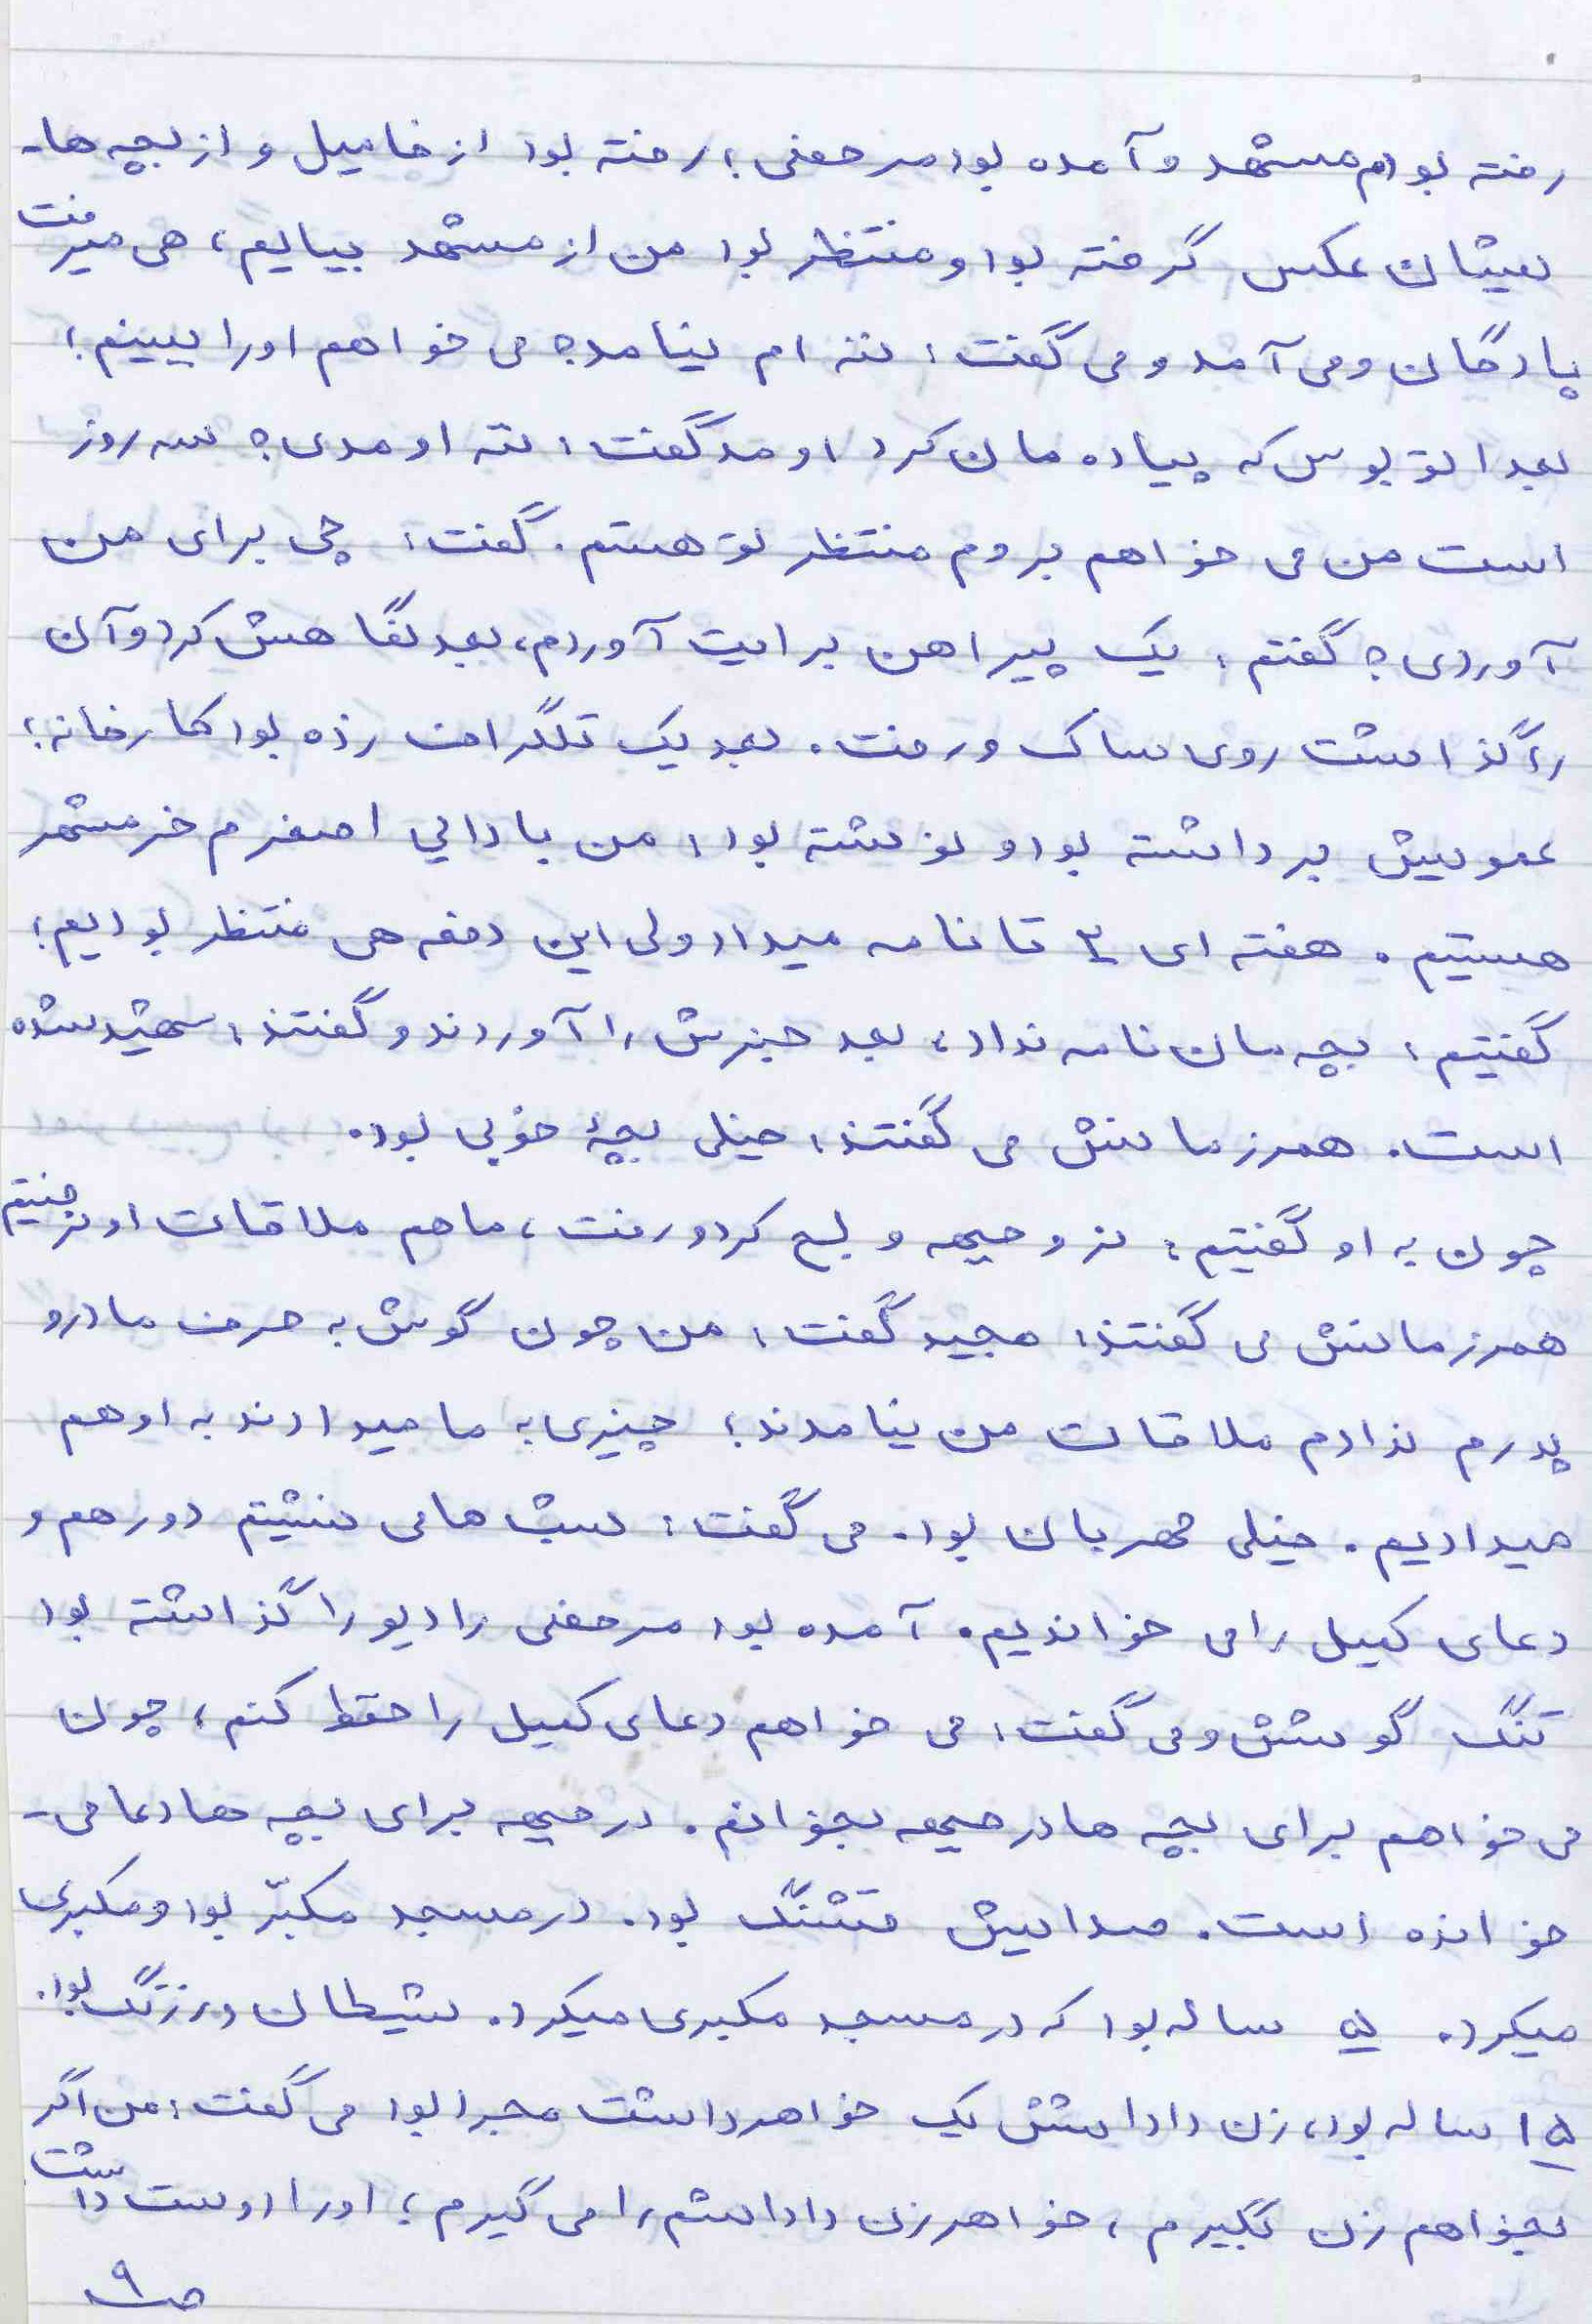 رفته بودم مشهد و آمده بود مرخصی؛ رفته بود از فامیل و از بچه ها-
یشان عکس گرفته بود و منتظر بود من از مشهد بیایم، هی میرفت
پادگان و می آمد و می گفت: ننه ام نیامد؟ می خواهم او را ببینم؛
بعد اتوبوس که پیاده مان کرد اومد گفت: ننه اومدی؟ سه روز
است من می خواهم بروم منتظر تو هستم. گفت: چی برای من
آوردی؟ گفتم: یک پیراهن برایت آوردم، بعد نگاهش کرد و آن
را گذاشت روی ساک و رفت. بعد یک تلگراف زده بود کارخانه؛
عمویش برداشته بود و نوشته بود: من با دایی اصغرم خرمشهر
هستیم. هفته ای ۲ تا نامه میداد ولی این دفعه هی منتظر بودیم؛
گفتیم: بچه مان نامه نداد، بعد خبرش را آوردند و گفتند: شهید شده
است. همرزمانش می گفتند: خیلی بچۀ خوبی بود.
چون به او گفتیم: نرو جبهه و ول کرد و رفت، ما هم ملاقات او نرفتیم
همرزمانش می گفتند: مجید گفت: من چون گوش به حرف مادر و
پدرم ندادم ملاقات من نیامدند؛ چیزی به ما میدادند به او هم
میدادیم. خیلی مهربان بود. می گفت: شب ها می نشینیم دور هم و
دعای کمیل را می خواندیم. آمده بود مرخصی رادیو را گذاشته بود
تنگ گوشش و می گفت: می خواهم دعای کمیل را حفظ کنم، چون
می خواهم برای بچه ها در جبهه بخوانم. در جبهه برای بچه ها دعا می-
خوانده است. صدایش قشنگ بود. در مسجد مکبّر بود و مکبری
میکرد. ۵ ساله بود که در مسجد مکبری میکرد. شیطان و زرنگ بود.
۱۵ ساله بود، زن داداشش یک خواهر داشت مجرد بود می گفت: من اگر
بخواهم زن بگیرم، خواهر زن داداشم را می گیرم؛ او را دوست داشت
ص۹